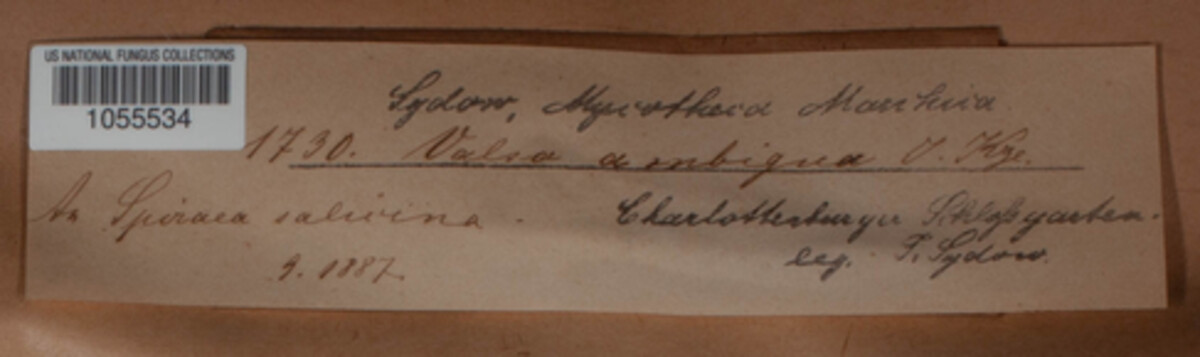 US NATIONAL FUNGUS COLLECTIONS
1055534
Sydow, Mycotheca Marchica
1730. Valsa ambigua O. Kze.
An Spiraea salicina.
Charlottenburger Schloßgarten.
9. 1887.
leg. P. Sydow.